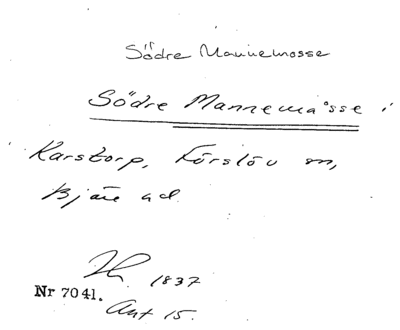 Södre Mannemosse
Södre Mannemåsse i
Karstorp, Förslöv sn,
Bjäre hd.
1837
Nr 7041.
Akt 15.